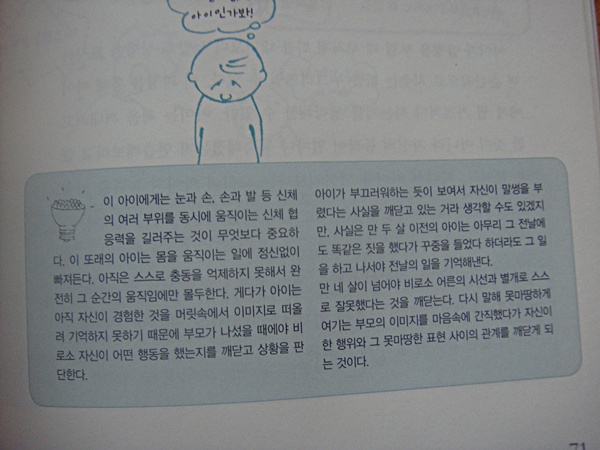 아이인가봐!
이 아이에게는 눈과 손, 손과 발 등 신체
의 여러 부위를 동시에 움직이는 신체 협
응력을 길러주는 것이 무엇보다 중요하
다. 이 또래의 아이는 몸을 움직이는 일에 정신없이
빠져든다. 아직은 스스로 충동을 억제하지 못해서 완
전히 그 순간의 움직임에만 몰두한다. 게다가 아이는
아직 자신이 경험한 것을 머릿속에서 이미지로 떠올
려 기억하지 못하기 때문에 부모가 나섰을 때에야 비
로소 자신이 어떤 행동을 했는지를 깨닫고 상황을 판
단한다.
아이가 부끄러워하는 듯이 보여서 자신이 말썽을 부
렸다는 사실을 깨닫고 있는 거라 생각할 수도 있겠지
만, 사실은 만 두 살 이전의 아이는 아무리 그 전날에
도 똑같은 짓을 했다가 꾸중을 들었다 하더라도 그 일
을 하고 나서야 전날의 일을 기억해낸다.
만 네 살이 넘어야 비로소 어른의 시선과 별개로 스스
로 잘못했다는 것을 깨닫는다. 다시 말해 못마땅하게
여기는 부모의 이미지를 마음속에 간직했다가 자신이
한 행위와 그 못마땅한 표현 사이의 관계를 깨닫게 되
는 것이다.
71